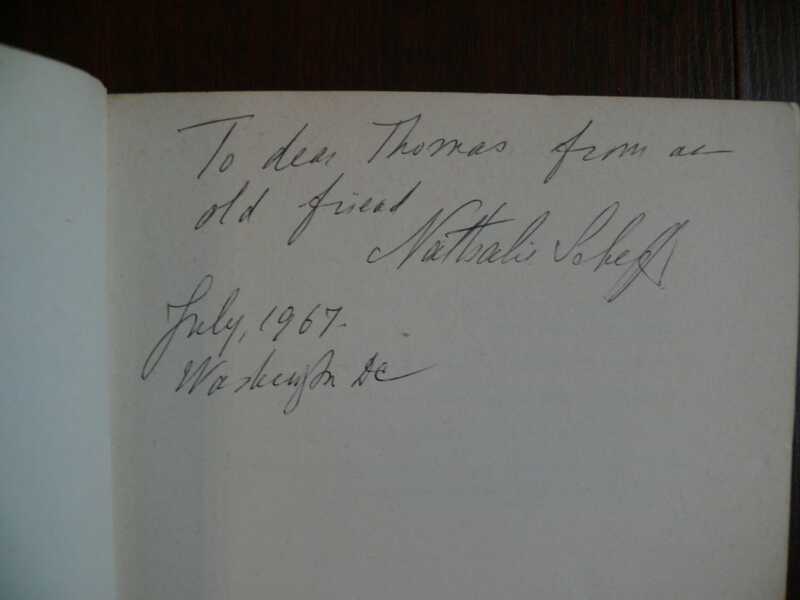 To dear Thomas from an
old friend
Nathalie Scheff
July, 1967.
Washington DC